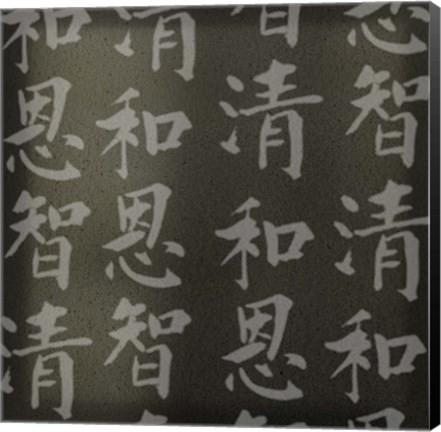 和 清
恩 和 清 智
智 恩 和 清
清 智 恩 和